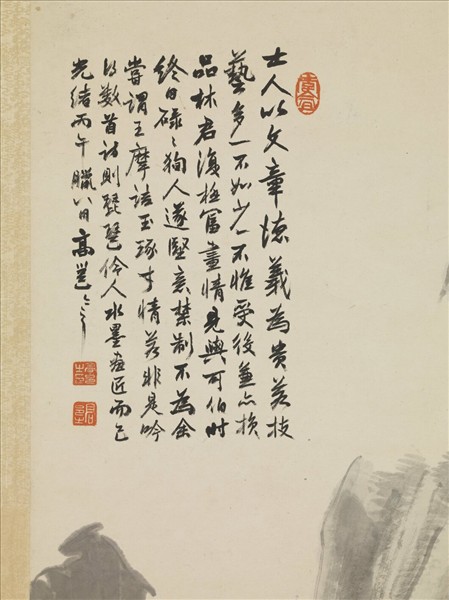 士人以文章德義為貴若技
藝多一不如少一不惟受役兼亦損
品林君復極富畫情見與可伯時
終日碌〻徇人遂堅意禁制不為余
嘗謂王摩詰玉琢才情若非是吟
得數首詩則琵琶伶人水墨畫匠而已
光緒丙午臘八日高邕之